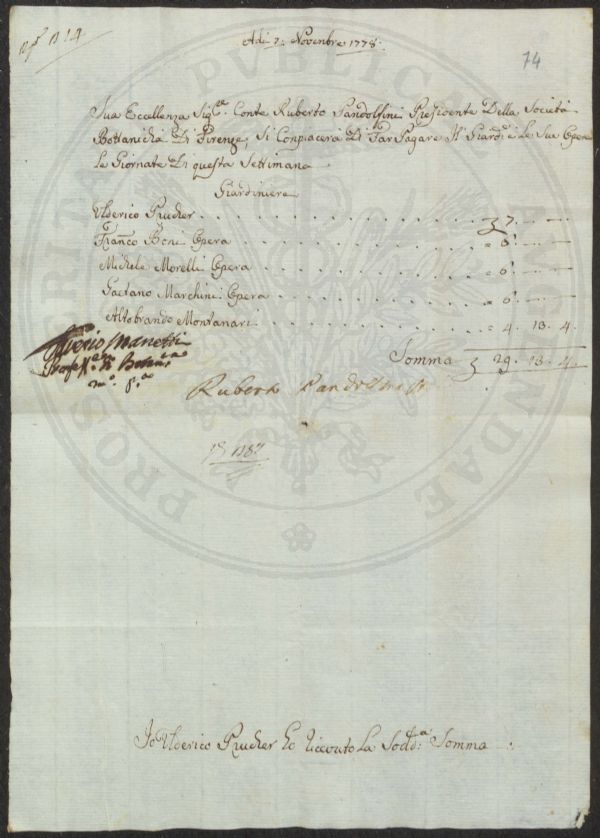 Adi 7. Novembre 1778.
74
Sua Eccellenza Sig.re Conte Ruberto Pandolfini Presidente Della Società
Bottanicha Di Firenze, Si Conpiacerà Di Far Pagare Il Giard.e e Le Sue Opera
Le Giornate Di questa Settimana
Giardiniere
Ulderico Prucker 7. — —
Franco Boni Opera = 6. — —
Michele Morelli Opera = 6. — —
Gaetano Marchini Opera = 6. — —
Altobrando Montanari = 4. 13. 4.
Somma 29. 13. 4.
Saverio Manetti
Profess.re di Botan.ca
m.o p.a
Ruberto Pandolfini
Io Ulderico Prucker ho Ricevuto La Sodd.a Somma
PUBLICAE
PROSPERITATI
AUGENDAE